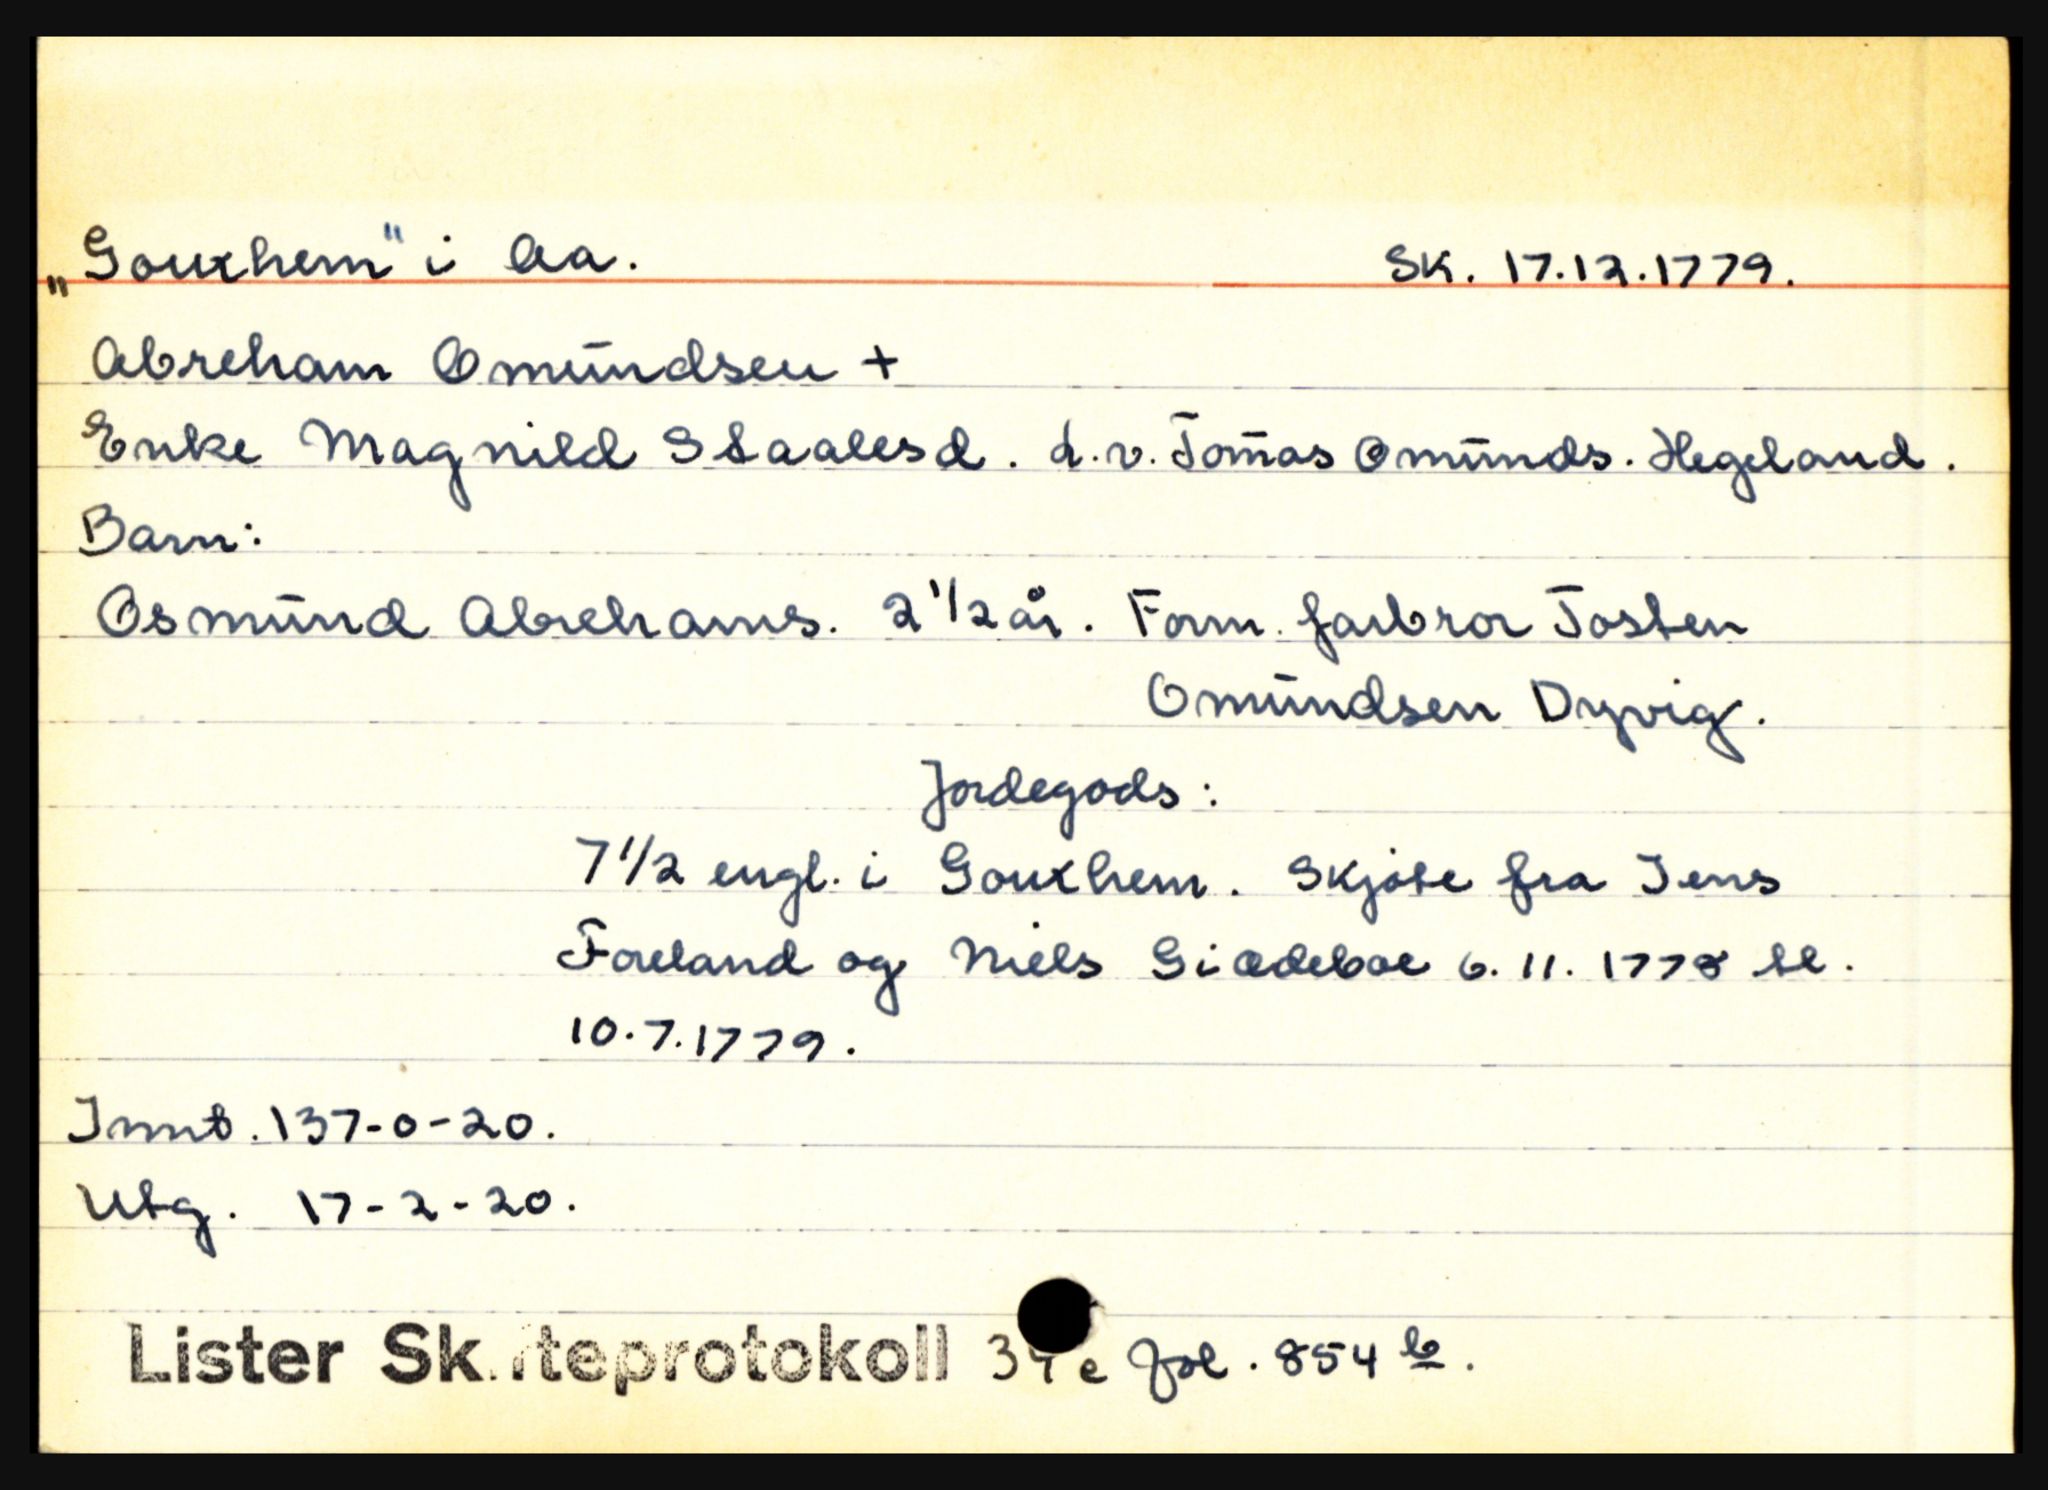 „Gouxhem" i Aa. Sk. 17.12.1779.
Abreham Omundsen +
Enke Magnild Staalesd. L.v. Tomas Omunds. Hegeland.
Barn:
Osmund Abrehams. 2 1/2 år. Form. farbror Tosten
Omundsen Dyvig.
Jordegods:
7 1/2 engl. i Gouxhem. Skjøte fra Jens
Foreland og Niels Giædeboe 6.11.1778 tl.
10.7.1779.
Innt. 137-0-20.
Utg. 17-2-20.
Lister Skifteprotokoll 34 c fol. 854 b.